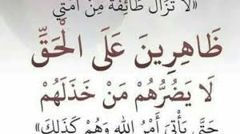 «لَا تَزَالُ طَائِفَةٌ مِنْ أُمَّتِي
ظَاهِرِينَ عَلَى الْحَقِّ
لَا يَضُرُّهُمْ مَنْ خَذَلَهُمْ
حَتَّى يَأْتِيَ أَمْرُ اللهِ وَهُمْ كَذَلِكَ»